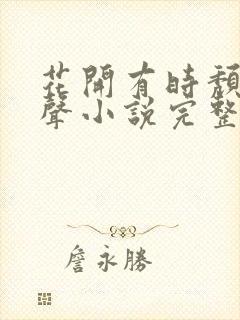 花開有時頹
聲小說完整
詹永勝